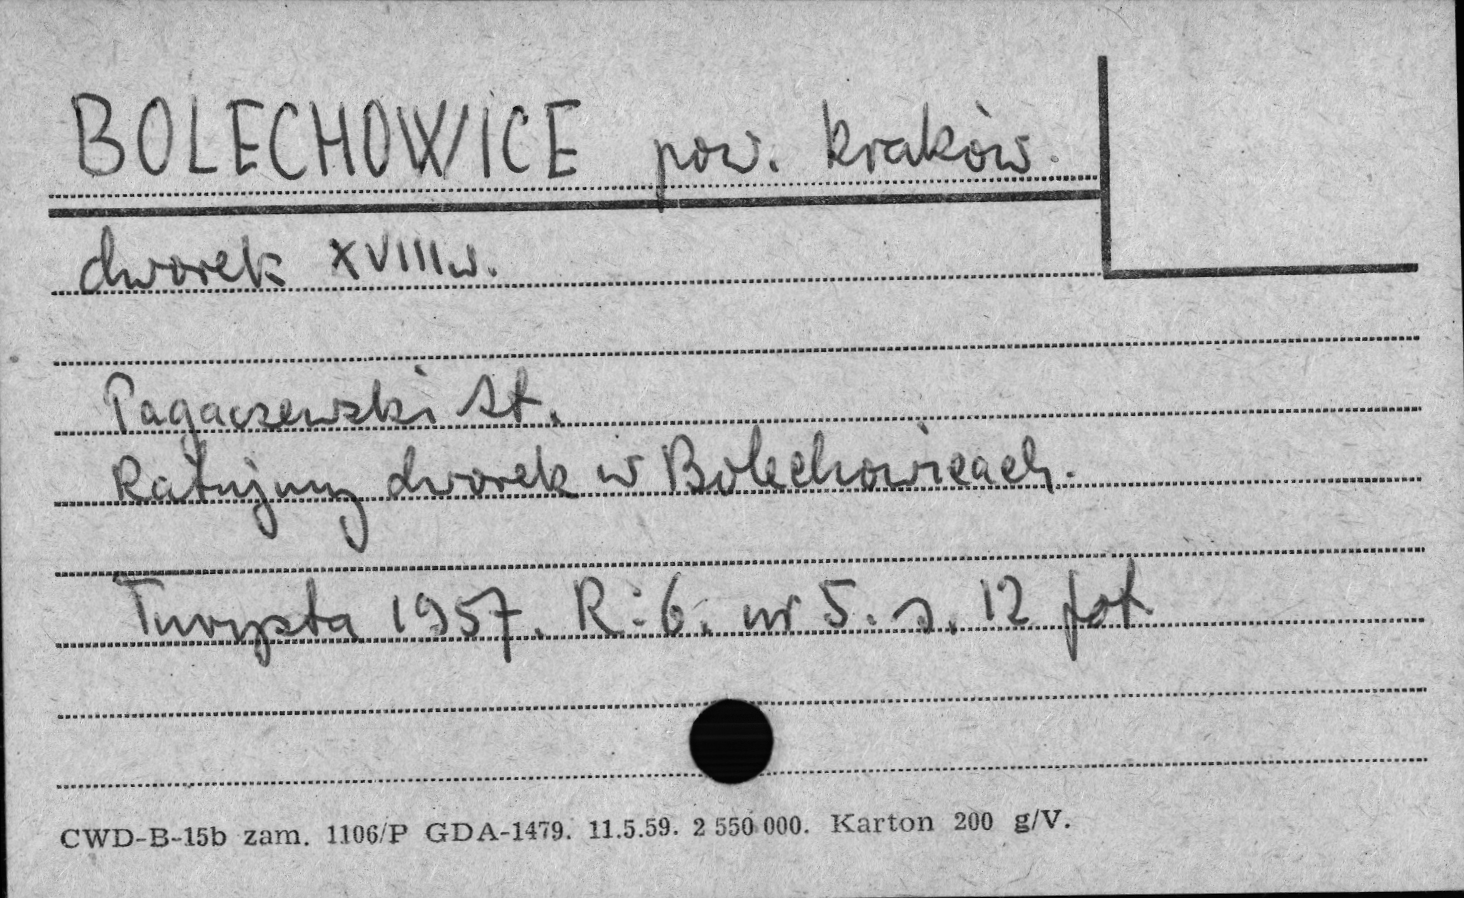 BOLECHOWICE pow. kraków.
dworek XVIII w.
Pagaczewski St.
Ratujmy dworek w Bolechowicach.
Turysta 1957. R: 6. nr 5. s. 12 fot
CWD-B-15b zam. 1106/P GDA-1479. 11.5.59. 2 550 000. Karton 200 g/V.